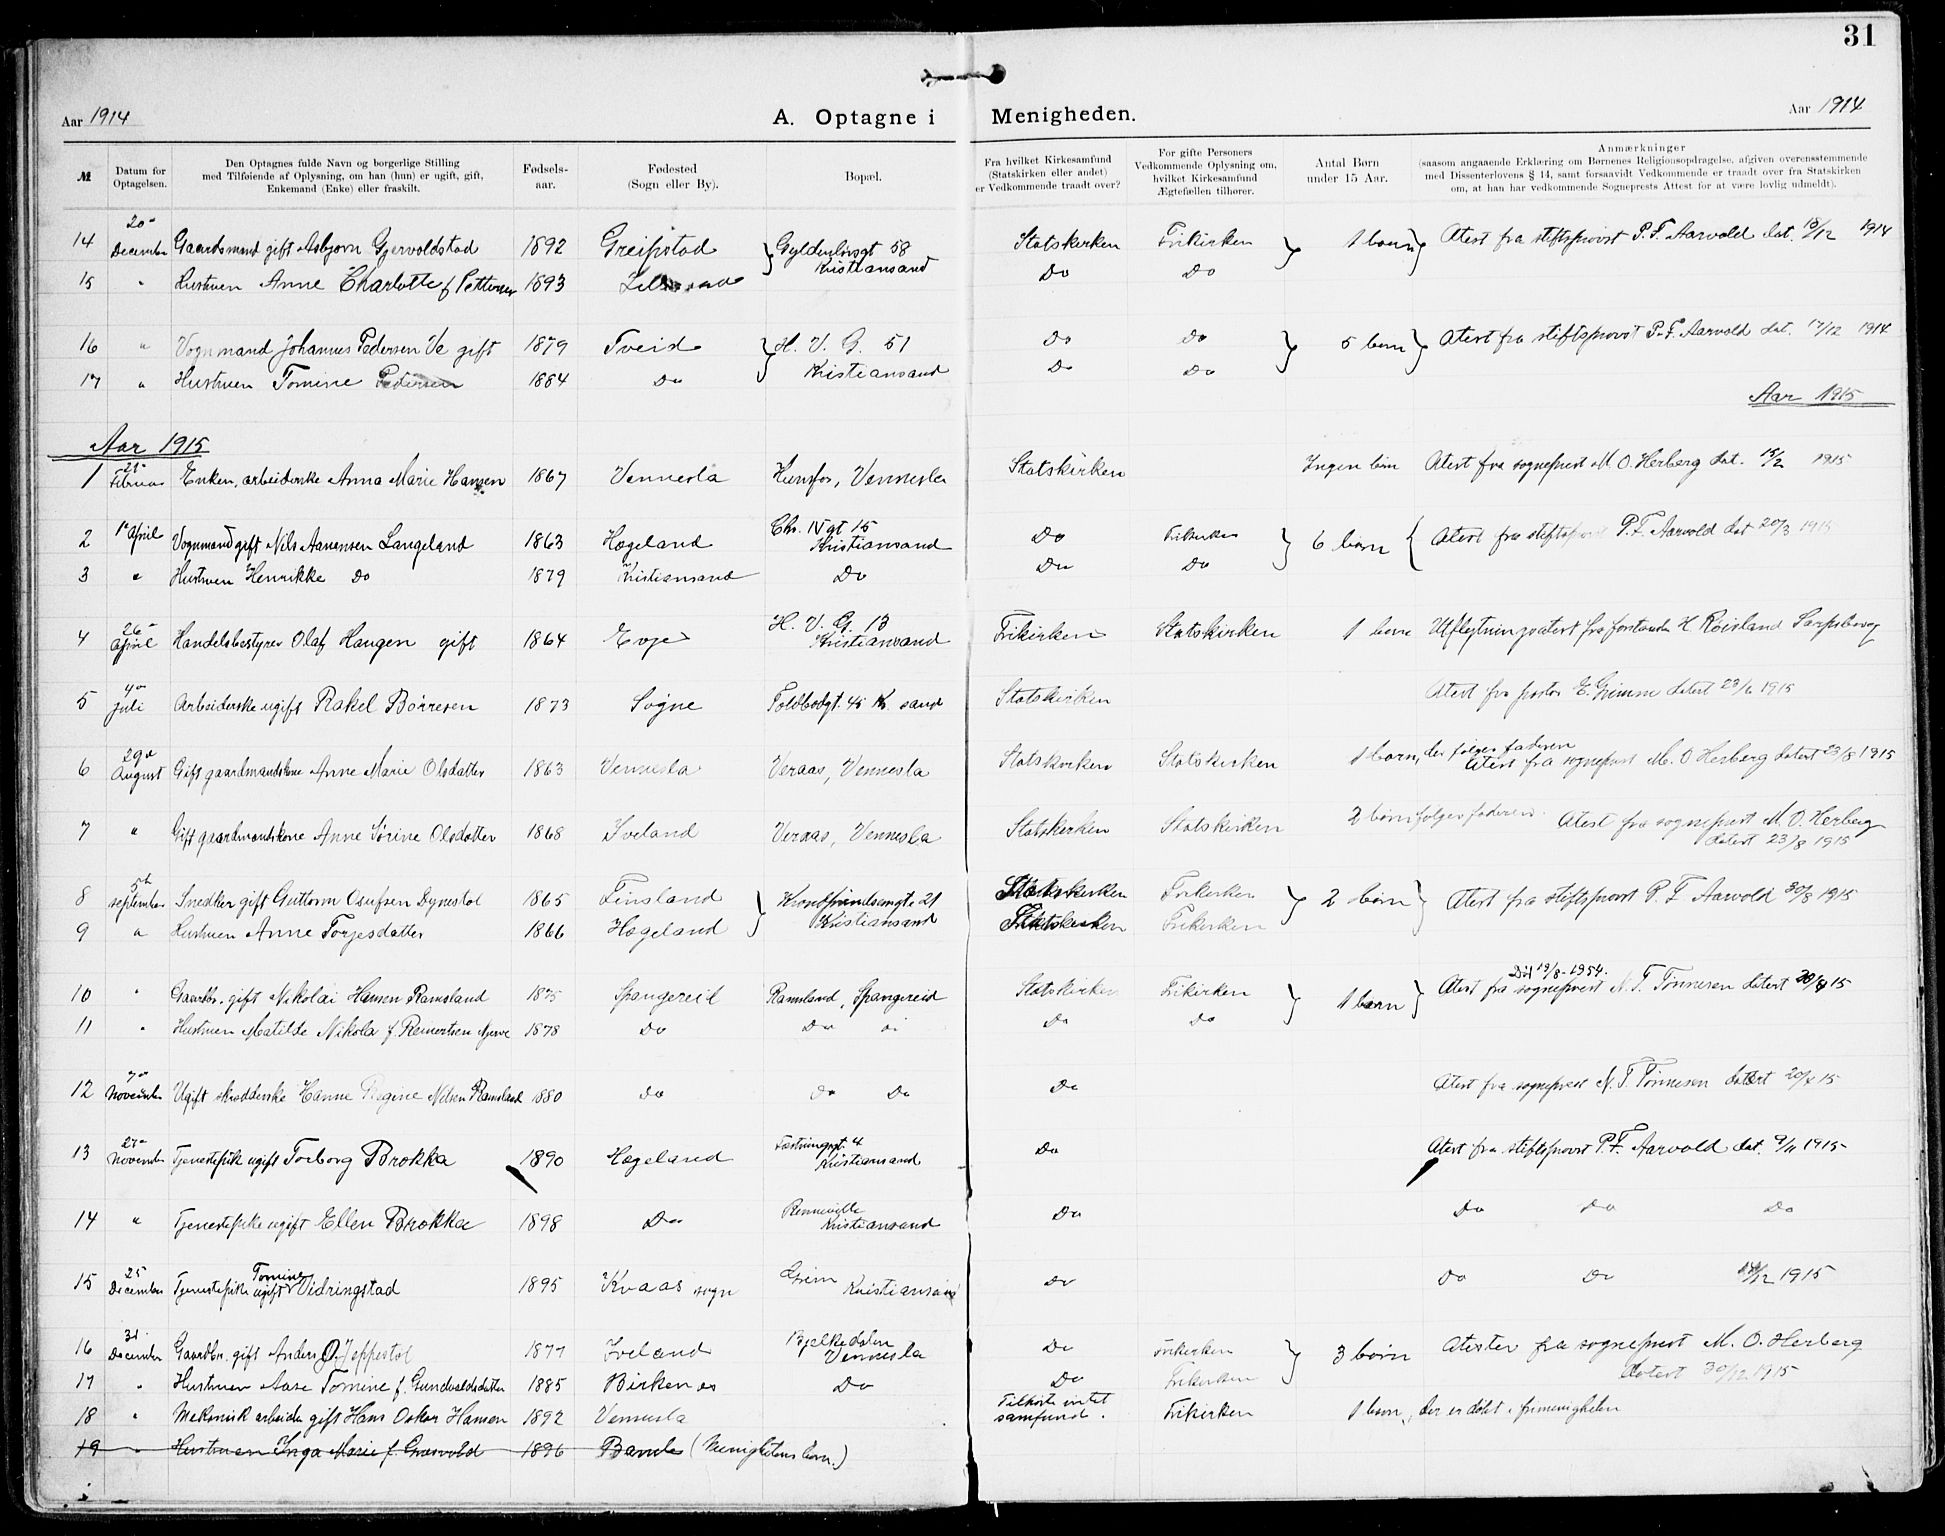 31
Aar 1914 A. Optagne i Menigheden. Aar 1914
№ | Datum for Optagelsen. | Den Optagnes fulde Navn og borgerlige Stilling med Tilføiende af Oplysning, om han (hun) er ugift, gift, Enkemand (Enke) eller fraskilt. | Fødsels-aar. | Fødested (Sogn eller By). | Bopæl. | Fra hvilket Kirkesamfund (Statskirken eller andet) er Vedkommende traadt over? | For gifte Personers Vedkommende Oplysning om, hvilket Kirkesamfund Ægtefællen tilhører. | Antal Børn under 15 Aar. | Anmærkninger (saasom angaaende Erklæring om Børnenes Religionsopdragelse, afgiven overensstemmende med Dissenterlovens § 14, samt forsaavidt Vedkommende er traadt over fra Statskirken om, at han har vedkommende Sogneprests Attest for at være lovlig udmeldt).
14 | 20de December | Gaardsmand gift Asbjørn Gjervoldstad | 1892 | Greipstad | Gyldenløvsgt 58 Kristiansand | Statskirken | Frikirken | 1 barn | Atest fra stiftsprovst P. F. Aarvold dat. 18/12 1914
15 | " | Hustruen Anne Charlotte f Pettersen | 1893 | | | Do | Do
16 | " | Vognmand Johannes Pedersen Ve gift | 1879 | Tveid | H. V. G. 51 Kristiansand | Do | Do | 5 børn | Atest fra stiftsprovst P. F. Aarvold dat. 17/12 1914
17 | " | Hustruen Tomine Pedersen | 1884 | Do | | Do | Do
Aar 1915
Aar 1915
1 | 21de Februar | Enken, arbeiderske Anna Marie Hansen | 1867 | Vennesla | Hunsfos, Vennesla | Statskirken | | Ingen børn | Atest fra sogneprest M. O. Herberg dat. 15/2 1915
2 | 1e April | Vognmand gift Nils Aanensen Langeland | 1863 | Hægeland | Chr. IV gt 15 Kristiansand | Do | Frikirken | 6 børn | Atest fra stiftsprovst P. F. Aarvold dat 20/3 1915
3 | " | Hustruen Henrikke Do | 1879 | Kristiansand | Do | Do | Do
4 | 26de April | Handelsbestyrer Olaf Haugen gift | 1864 | Evje | H. V. G. 13 Kristiansand | Frikirken | Statskirken | 1 barn | Utflytningsatest fra forstander H Røisland Sarpsborg
5 | 4de Juli | Arbeiderske ugift Rakel Børresen | 1873 | Søgne | Toldbodgt. 45 K. sand | Statskirken | | | Atest fra pastor E. Grimm datert 23/6 1915
6 | 29de August | Gift gaardmandskone Anne Marie Olsdatter | 1863 | Vennesla | Veraas, Vennesla | Statskirken | Statskirken | 1 barn, der følger faderen | Atest fra sogneprest M. O Herberg datert 23/8 1915
7 | " | Gift gaardmandskone Anne Sørine Olsdatter | 1868 | Iveland | Veraas, Vennesla | Statskirken | Statskirken | 2 børn følger faderen. | Atest fra sogneprest M. O. Herberg datert 23/8 1915
8 | 5te september | Snedker gift Guttorm Osufsen Dynestøl | 1865 | Finsland | Kronprindsensgt. 21 Kristiansand | Statskirken | Frikirken | 2 børn | Atest fra stiftsprovst P. F. Aarvold 30/8 1915
9 | " | Hustruen Anne Torjesdatter | 1866 | Hægeland | | Statskirken | Frikirken
10 | " | Gaardbr. gift Nikolai Hansen Ramsland | 1875 | Spangereid | Ramsland, Spangereid | Statskirken | Frikirken | 1 barn | Død 19/8-1954. Atest fra sogneprest N. T. Tønnesen datert 15
11 | " | Hustruen Matilde Nikola f. Reinertsen | 1878 | Do | Do | Do | Do
12 | 7de November | Ugift skrædderske Hanne Regine Nelsen Ramsland | 1880 | Do | Do Do | Do | | | Atest fra sogneprest N. T. Tønnesen datert 15
13 | November | Tjenestepike ugift Torborg Brokka | 1890 | Hægeland | Festningsgt. 4 Kristiansand | Do | | | Atest fra stiftsprovst P. F. Aarvold dat. 9/11 1915
14 | " | Tjenestepike ugift Ellen Brokka | 1898 | Do | Kristiansand | Do | | | Do Do Do
15 | 25 December | Tjenestepike ugift Tomine Vidringstad | 1895 | Kvaas sogn | Grim Kristiansand | Do | | | Do Do 1915
16 | 31. December | Gaardbr. gift Anders O. Jeppestøl | 1877 | Iveland | Bjelkedalen Vennesla | Do | Frikirken | 3 børn | Atester fra sogneprest M. O. Herberg datert 30/12 1915
17 | " | Hustruen Aase Tomine f. Gundvaldsdatter | 1885 | Birkenes | Do | Do | Frikirken
18 | " | Mekanisk arbeider gift Hans Oskar Hansen | 1892 | Vennesla | | Tilhørte intet samfund. | Frikirken | 1 barn, der er døbt i frimenigheten
19 | " | Hustruen Inga Marie f. Græsvold | 1896 | Bamle (Menighetens barn.)